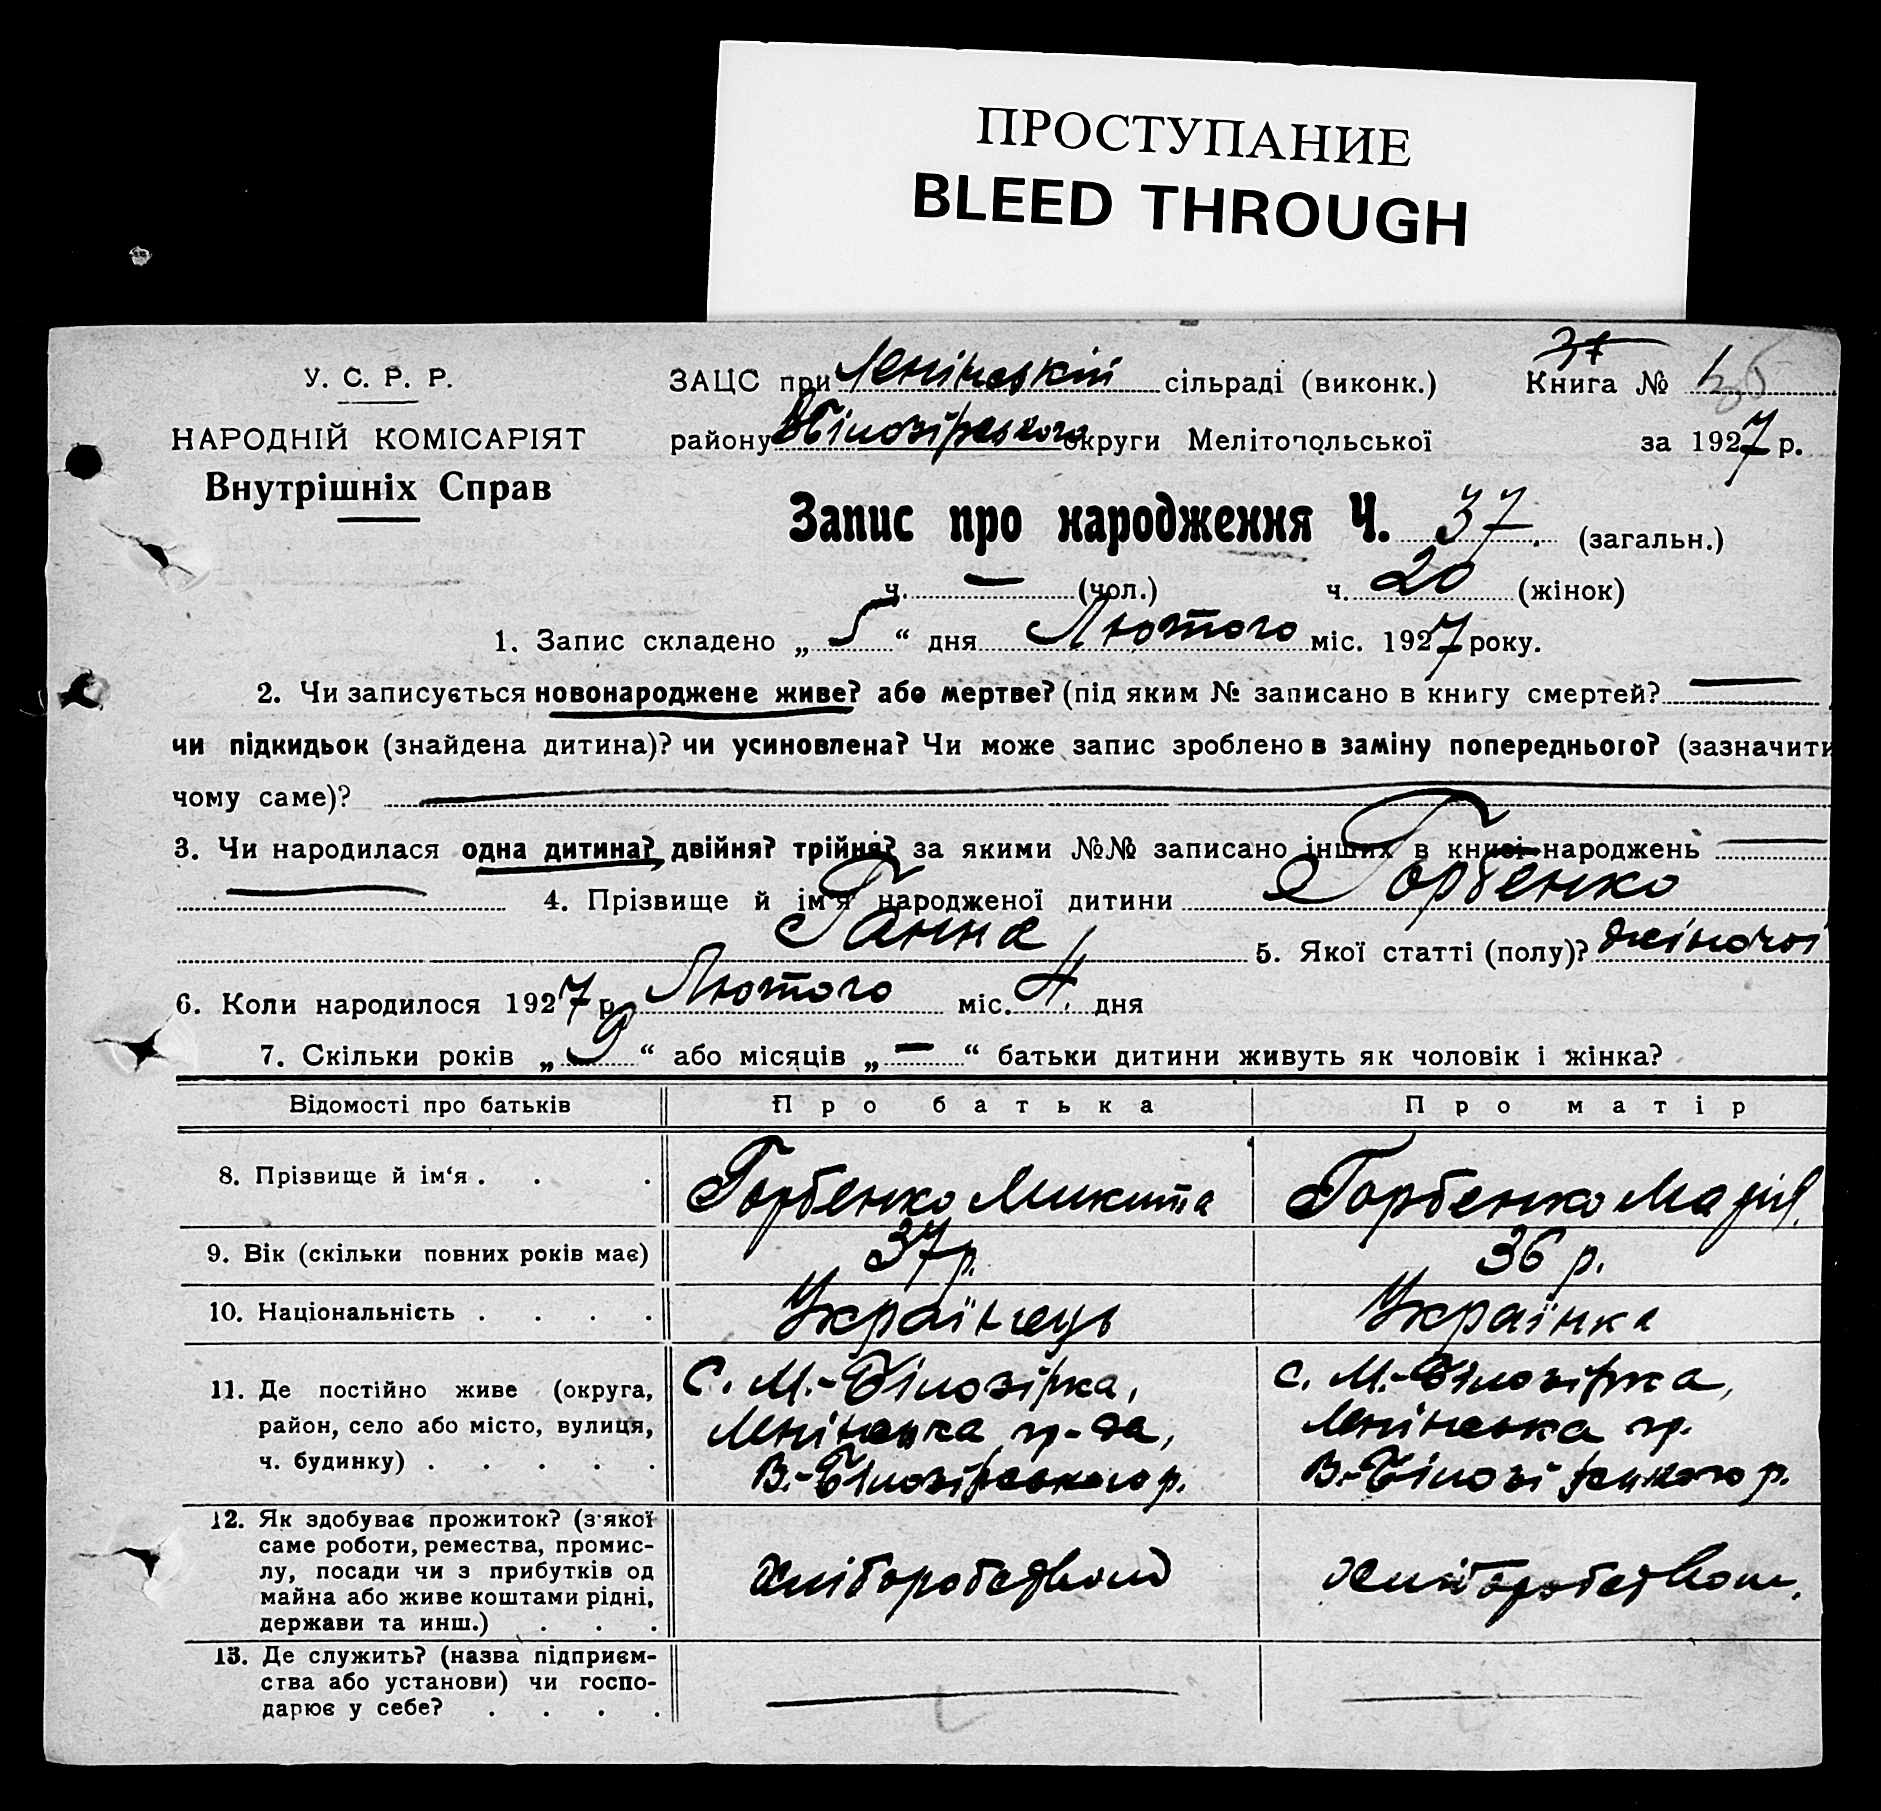 ПРОСТУПАНИЕ
BLEED THROUGH
37
У. С. Р. Р.
ЗАЦС при Ленінській сільраді (виконк.) Книга №
НАРОДНІЙ КОМІСАРІЯТ
району округи Мелітопольської за 1927 р.
Внутрішніх Справ
Запис про народження Ч. 37. (загальн.)
ч. — (чол.) ч. 20 (жінок)
1. Запис складено „ 5 “ дня Лютого міс. 1927 року.
2. Чи записується новонароджене живе? або мертве? (під яким № записано в книгу смертей? —
чи підкидьок (знайдена дитина)? чи усиновлена? Чи може запис зроблено в заміну попереднього? (зазначити
чому саме)? —
3. Чи народилася одна дитина? двійня? трійня? за якими №№ записано інших в книзі народжень —
— 4. Прізвище й ім'я народженої дитини Горбенко
Ганна 5. Якої статті (полу)? жіночої
6. Коли народилося 1927 р. Лютого міс. 4. дня
7. Скільки років „ 9 “ або місяців „ — “ батьки дитини живуть як чоловік і жінка?
Відомості про батьків Про батька Про матір
8. Прізвище й ім‘я . . . Горбенко Микита Горбенко Марія.
9. Вік (скільки повних років має) 37 р. 36 р.
10. Національність . . . . Українець Українка
11. Де постійно живе (округа,
район, село або місто, вулиця,
ч. будинку) . . . . .
С. М.-Білозірка,
Ленінська гр-да,
В.-Білозірського р.
с. М.-Білозірка,
Ленінська гр.
В.-Білозірського р.
12. Як здобуває прожиток? (з'якої
саме роботи, ремества, промис-
лу, посади чи з прибутків од
майна або живе коштами рідні,
держави та инш.) . . .
хліборобством
хліборобством.
13. Де служить? (назва підприєм-
ства або установи) чи госпо-
дарює у себе? . . . .
— —